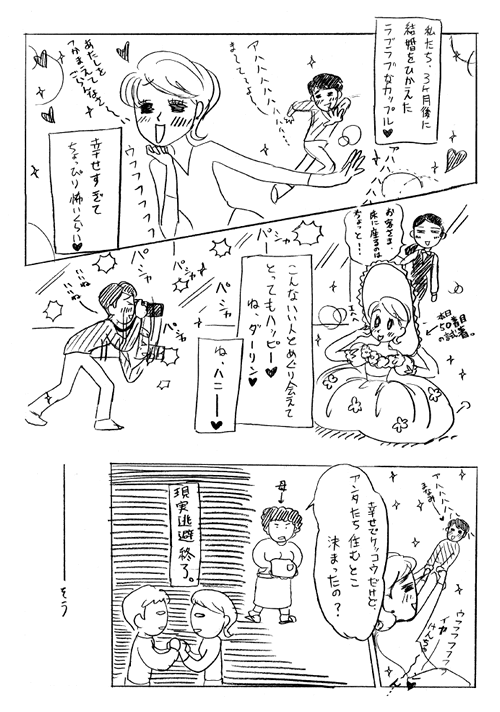 私たち、3ヶ月後に
結婚をひかえた
ラブラブなカップル♥
アハハハハハハ
ま〜て〜〜
あたしを
つかまえて
ごらん
ウフフフフフフ
幸せすぎて
ちょっぴり怖いくらい♥
お客さま、
床に座るのは
ちょっと…!
本日
50着目
の試着。
こんないい人とめぐり会えて
とってもハッピー♥
ね、ダーリン♥
ね、ハニー♥
パシャ
パシャ
パシャ
パシャ
パシャ
パシャ
いいね
いいね
アハハハハ
ウフフフフフ
幸せでケッコウだけど、
アンタたち住むとこ
決まったの?
母
現実逃避終了。
そう